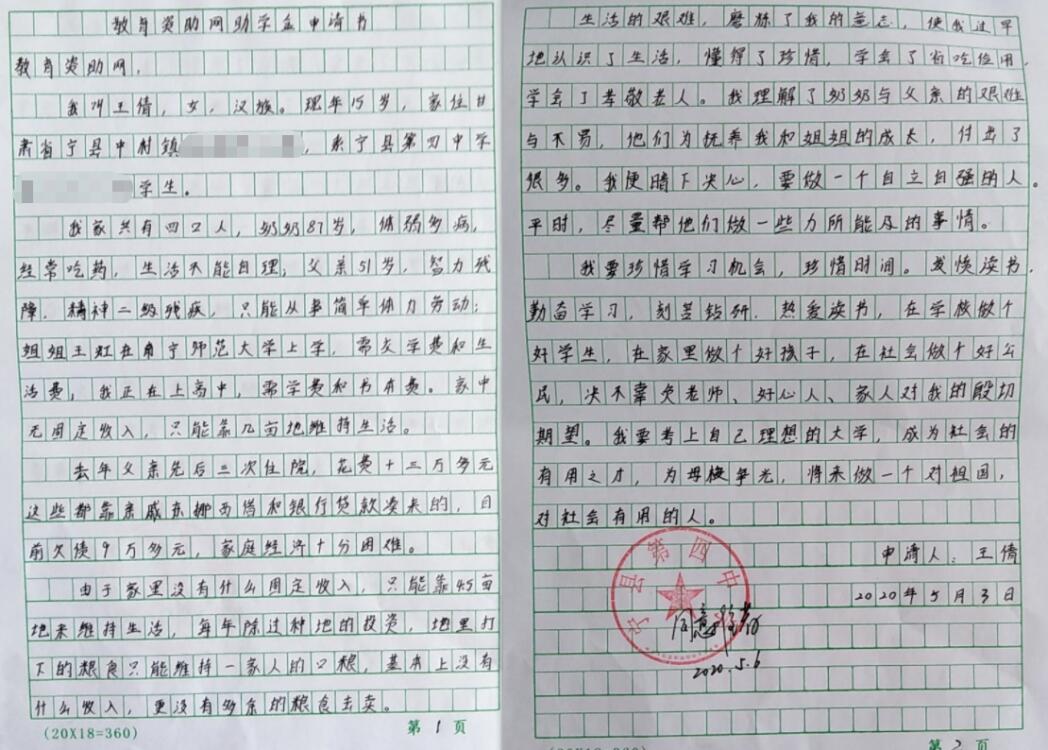 教育资助网助学金申请书
教育资助网，
我叫王倩，女，汉族。现年15岁，家住甘
肃省宁县中村镇，系宁县第四中学
学生。
我家共有四口人，奶奶87岁，体弱多病，
经常吃药，生活不能自理；父亲51岁，智力残
障，精神二级残疾，只能从事简单体力劳动；
姐姐王虹在南宁师范大学上学，需交学费和生
活费；我正在上高中，需学费和书本费。家中
无固定收入，只能靠几亩地维持生活。
去年父亲先后三次住院，花费十三万多元
这些都靠亲戚东挪西借和银行贷款凑来的，目
前欠债9万多元，家庭经济十分困难。
由于家里没有什么固定收入，只能靠4.5亩
地来维持生活，每年除过种地的投资，地里打
下的粮食只能维持一家人的口粮，基本上没有
什么收入，更没有多余的粮食去卖。
(20X18=360)
第1页
生活的艰难，磨炼了我的意志，使我过早
地认识了生活，懂得了珍惜，学会了省吃俭用，
学会了孝敬老人。我理解了奶奶与父亲的艰难
与不易，他们为抚养我和姐姐的成长，付出了
很多。我便暗下决心，要做一个自立自强的人。
平时，尽量帮他们做一些力所能及的事情。
我要珍惜学习机会，珍惜时间。发愤读书，
勤奋学习，刻苦钻研，热爱读书，在学校做个
好学生，在家里做个好孩子，在社会做个好公
民，决不辜负老师、好心人、家人对我的殷切
期望。我要考上自己理想的大学，成为社会的
有用之才，为母校争光，将来做一个对祖国，
对社会有用的人。
申请人：王倩
2020年5月3日
宁县第四中学
同意
2020.5.6
第2页